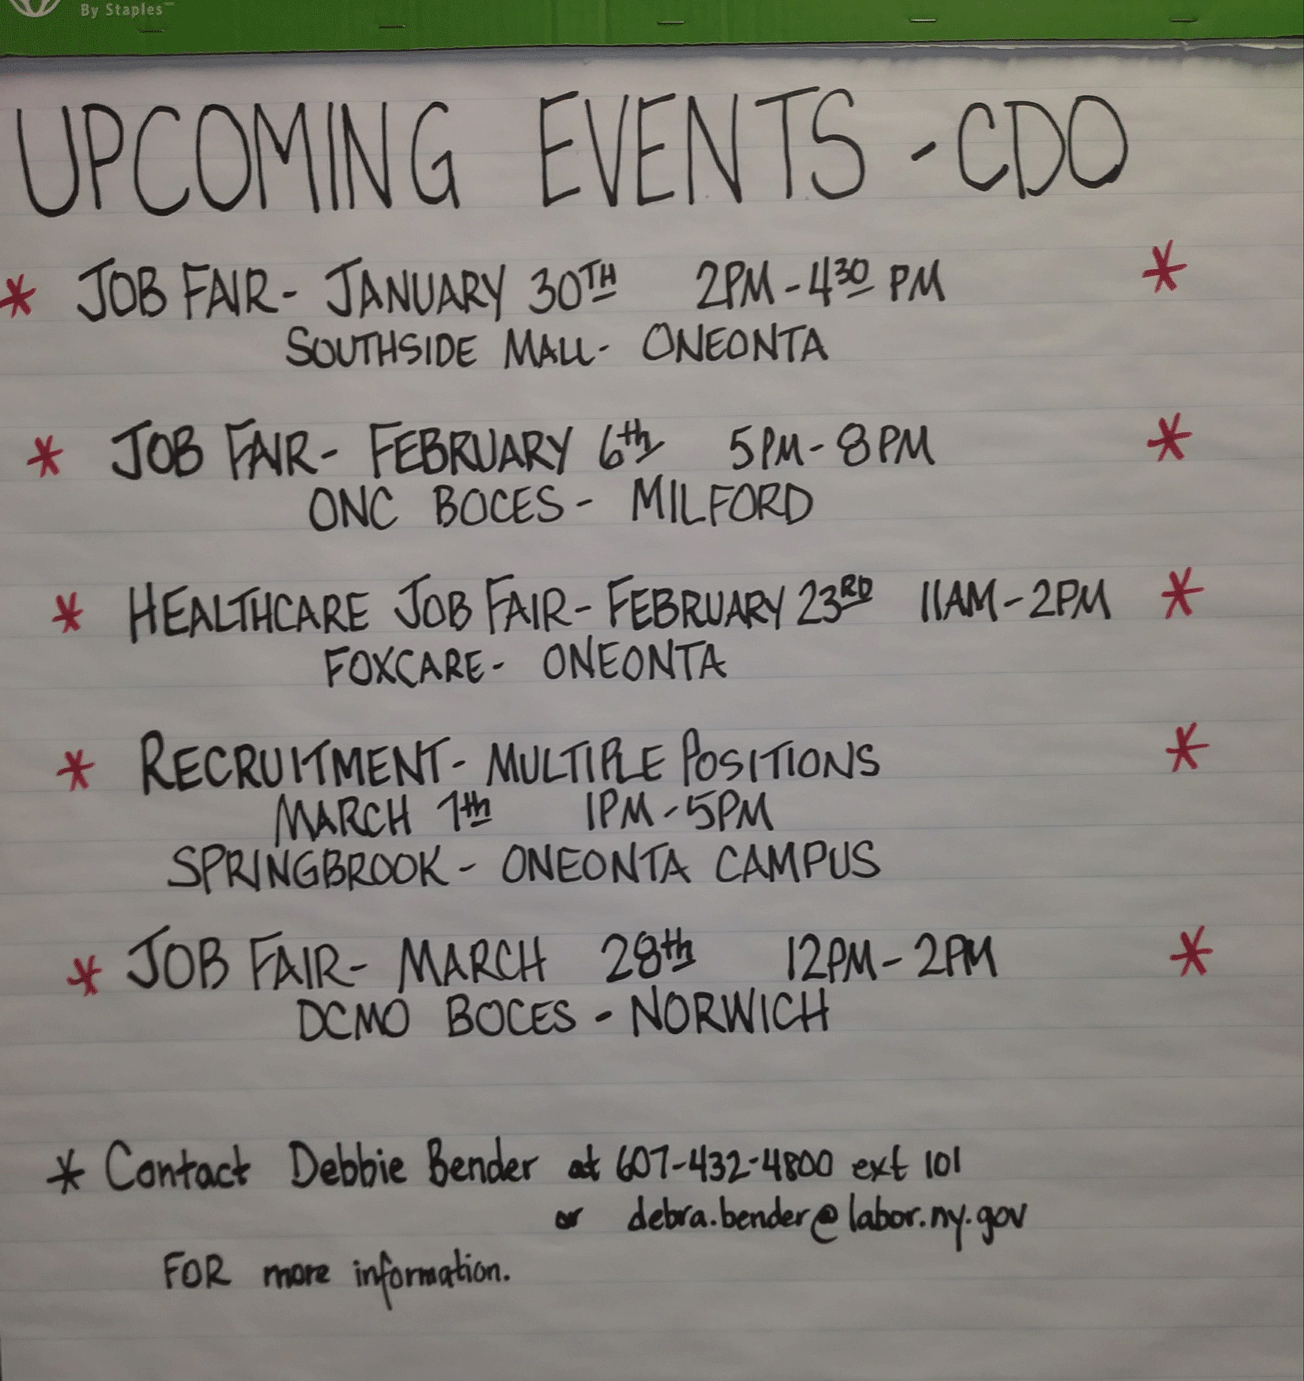 By Staples™
UPCOMING EVENTS - CDO
* JOB FAIR - JANUARY 30TH 2PM - 430 PM *
SOUTHSIDE MALL - ONEONTA
* JOB FAIR - FEBRUARY 6th 5PM - 8PM *
ONC BOCES - MILFORD
* HEALTHCARE JOB FAIR - FEBRUARY 23RD 11AM - 2PM *
FOXCARE - ONEONTA
* RECRUITMENT - MULTIPLE POSITIONS *
MARCH 7th 1PM - 5PM
SPRINGBROOK - ONEONTA CAMPUS
* JOB FAIR - MARCH 28th 12PM - 2PM *
DCMO BOCES - NORWICH
* Contact Debbie Bender at 607-432-4800 ext 101
or debra.bender@labor.ny.gov
FOR more information.